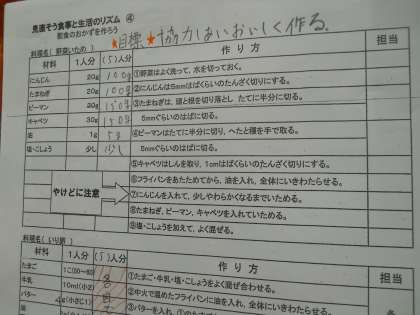 見直そう食事と生活のリズム ④
朝食のおかずを作ろう
★目標★協力しおいしく作る。
料理名( 野菜いため )
材料 1人分 (5)人分 作り方 担当
にんじん 20g 100g ①野菜はよく洗って、水を切っておく。
たまねぎ 20g 100g ②にんじんは5mmはばくらいのたんざく切りにする。
ピーマン 20g ③たまねぎは、頭と根を切り落とし たてに半分に切る。
キャベツ 30g 150g 5mmぐらいのはばに切る。
油 1g 5g ④ピーマンはたてに半分に切り、へたと種を手で取る。
塩・こしょう 少し 少し 5mmぐらいのはばに切る。
⑤キャベツはしんを取り、1cmはばくらいのたんざく切りにする。
⑥フライパンをあたためてから、油を入れ、全体にいきわたらせる。
やけどに注意 ⑦にんじんを入れて、少しやわらかくなるまでいためる。
⑧たまねぎ、ピーマン、キャベツを入れていためる。
⑨塩・こしょうを加えて、よく混ぜる。
料理名( いり卵 )
材料 1人分 (5)人分 作り方 担当
たまご ①たまご・牛乳・塩・こしょうをよく混ぜ合わせる。
牛乳 10ml(小2) ②中火で温めたフライパンに油を入れ、全体にいきわたらせる。
バター 4g(小さじ1)